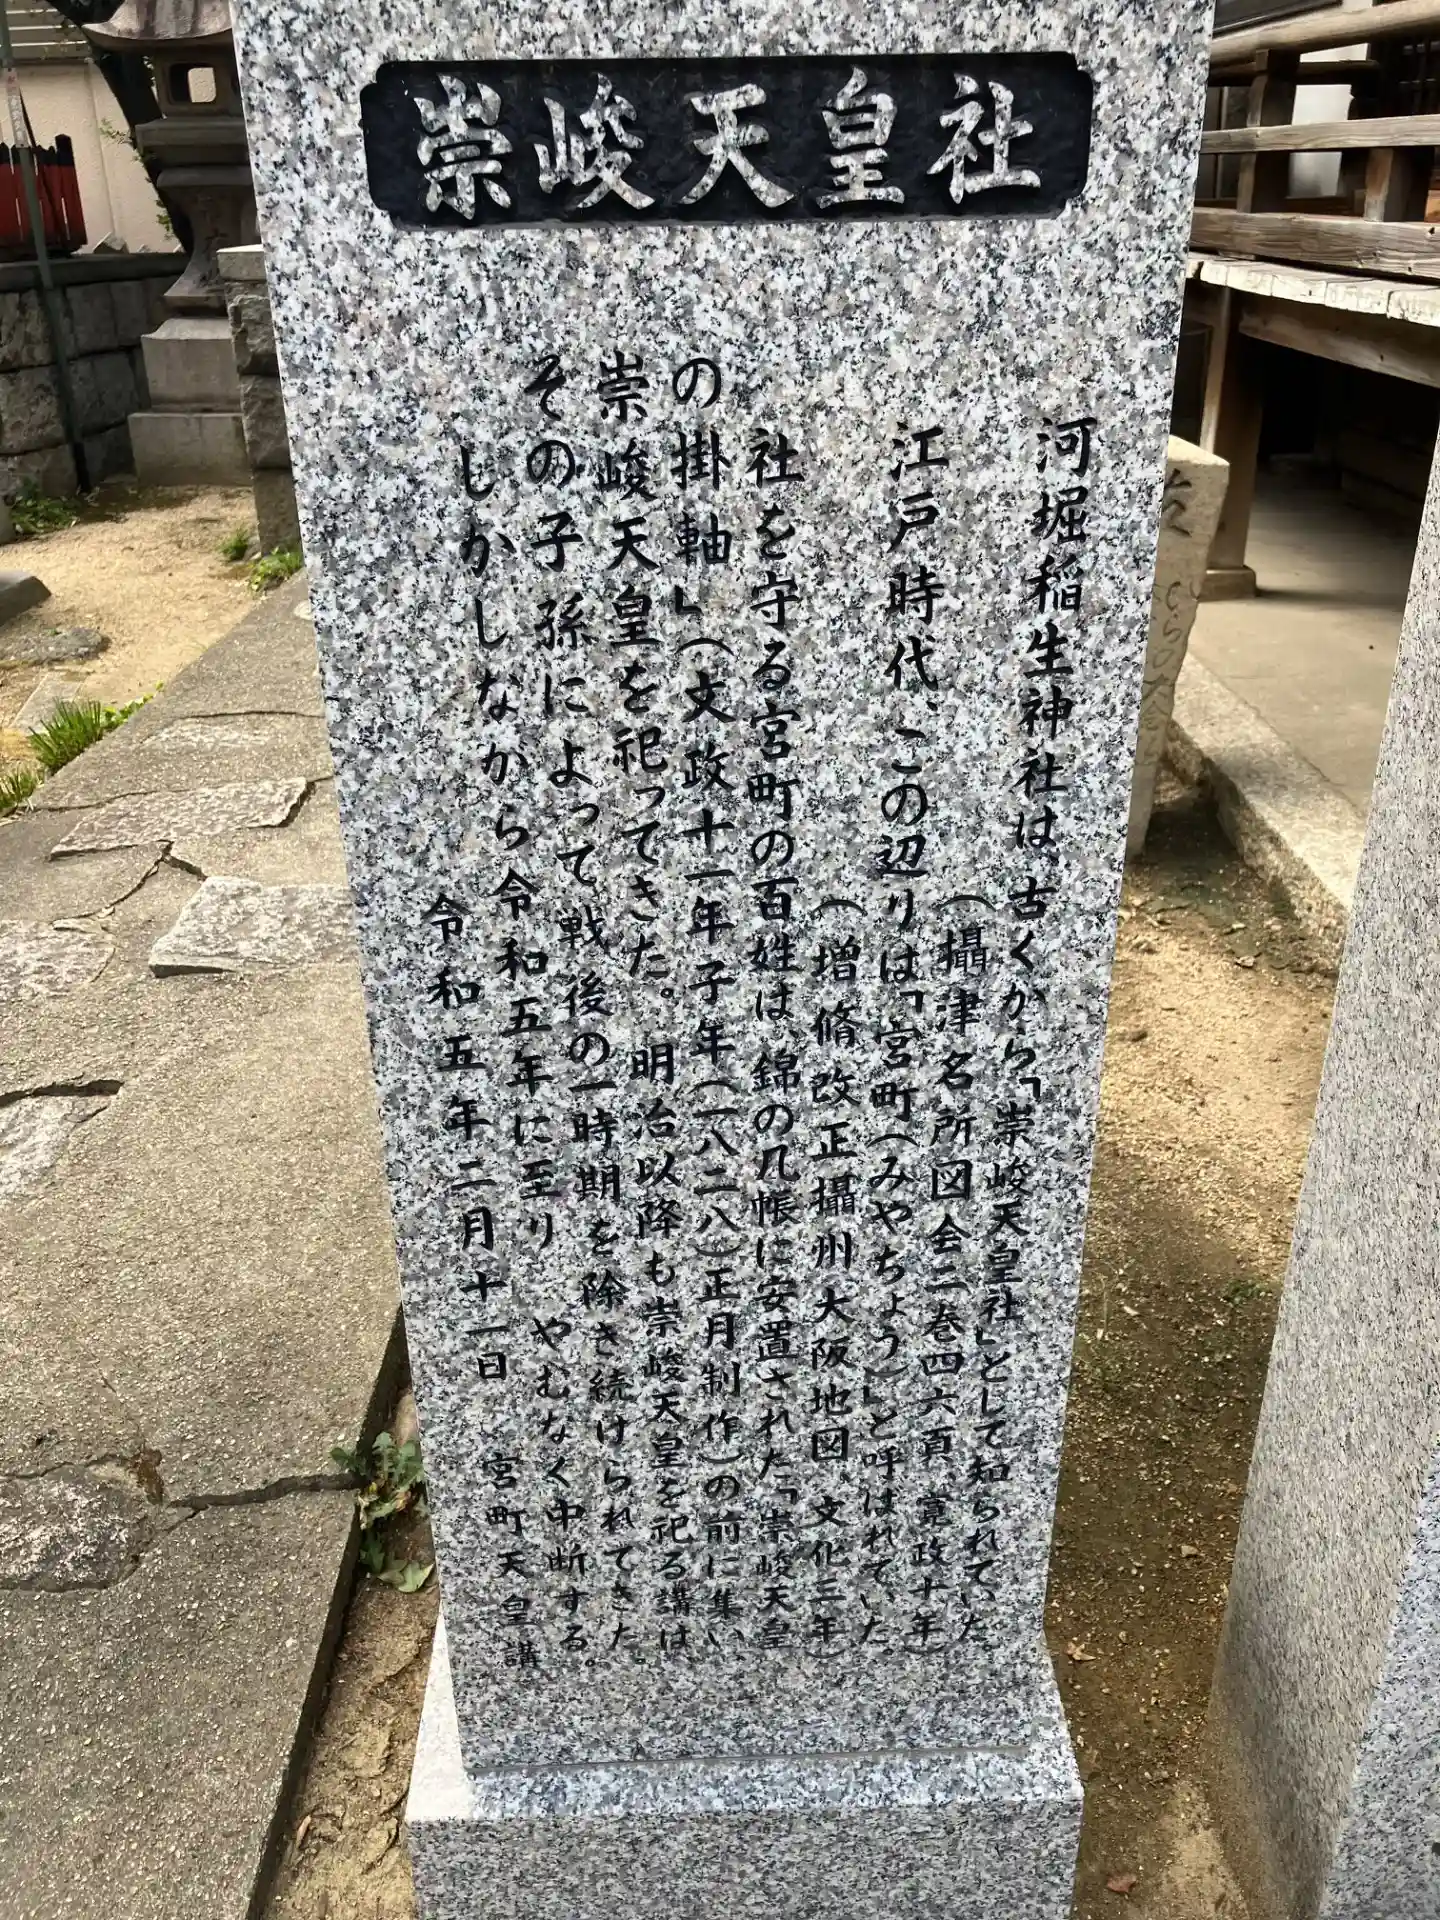 崇峻天皇社
河堀稲生神社は、古くから「崇峻天皇社」として知られていた。
(攝津名所図会二巻四六頁 寛政十年)
江戸時代、この辺りは「宮町(みやちょう)」と呼ばれていた。
(増脩改正攝州大阪地図 文化三年)
社を守る宮町の百姓は、錦の几帳に安置された「崇峻天皇
の掛軸」(文政十一年子年(一八二八)正月制作)の前に集い、
崇峻天皇を祀ってきた。明治以降も崇峻天皇を祀る講は、
その子孫によって戦後の一時期を除き続けられてきた。
しかしながら令和五年に至り やむなく中断する。
令和五年二月十一日 宮町天皇講